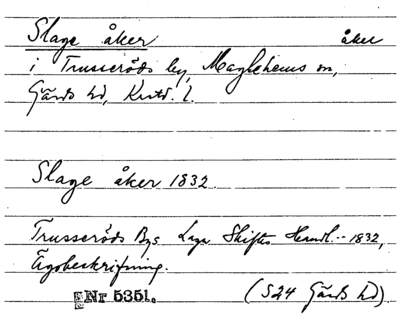 Slage åker åker
i Trusseröds by, Maglehems sn,
Gärds hd, Krstd. l.
Slage åker 1832.
Trusseröds Bys Laga Skiftes Handl. 1832,
Ägobeskrifning.
Nr 5351. (S24 Gärds hd)